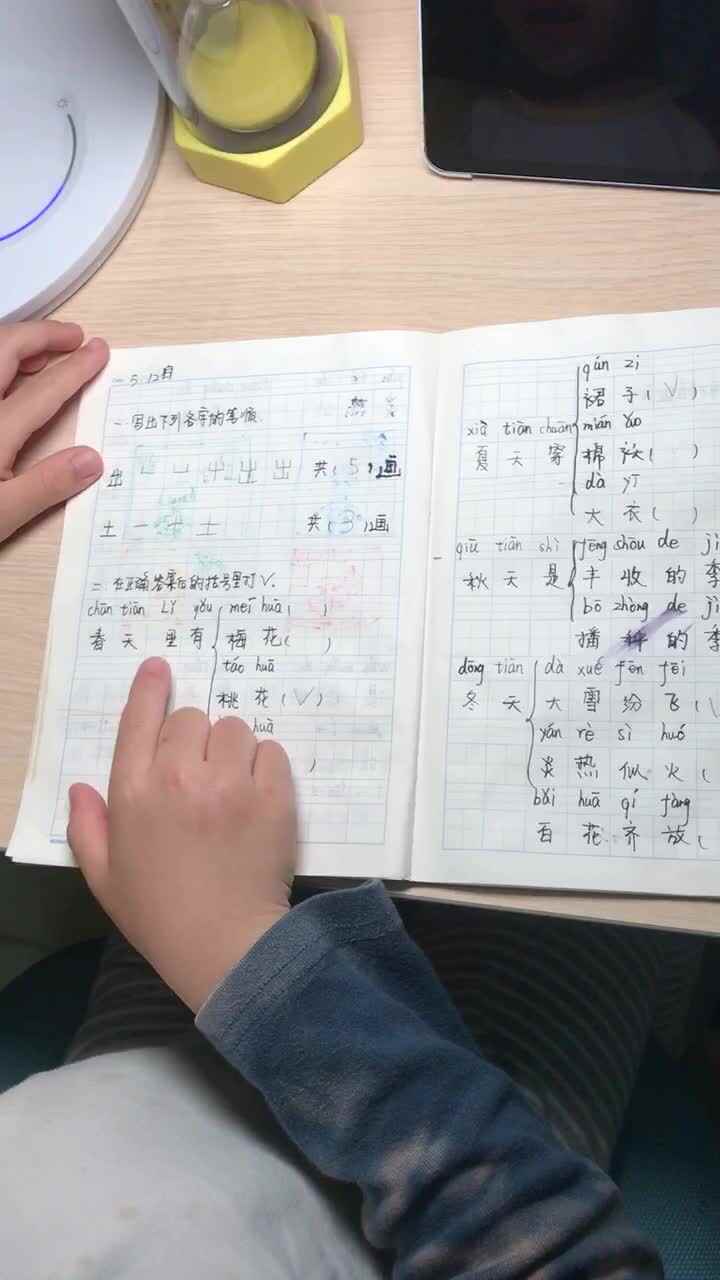 5.12日
一.写出下列各字的笔顺.
出 出 出 共(5)画
土 一 十 土 共(3)画
二.在正确答案后的括号里打√.
chūn tiān Lǐ yǒu meí huā ( )
春 天 里 有 梅 花( )
táo huā
桃 花(√)
huā
)
qún zi
裙 子(√)
xià tiān chuān mián ǎo
夏 天 穿 棉 袄( )
dà yī
大 衣( )
qiū tiān shì fēng shōu de jì
秋 天 是 丰 收 的 季
bō zhǒng de jì
播 种 的 季
dōng tiān dà xuě fēn fēi
冬 天 大 雪 纷 飞(
yán rè sì huǒ
炎 热 似 火(
bǎi huā qí fàng
百 花 齐 放(